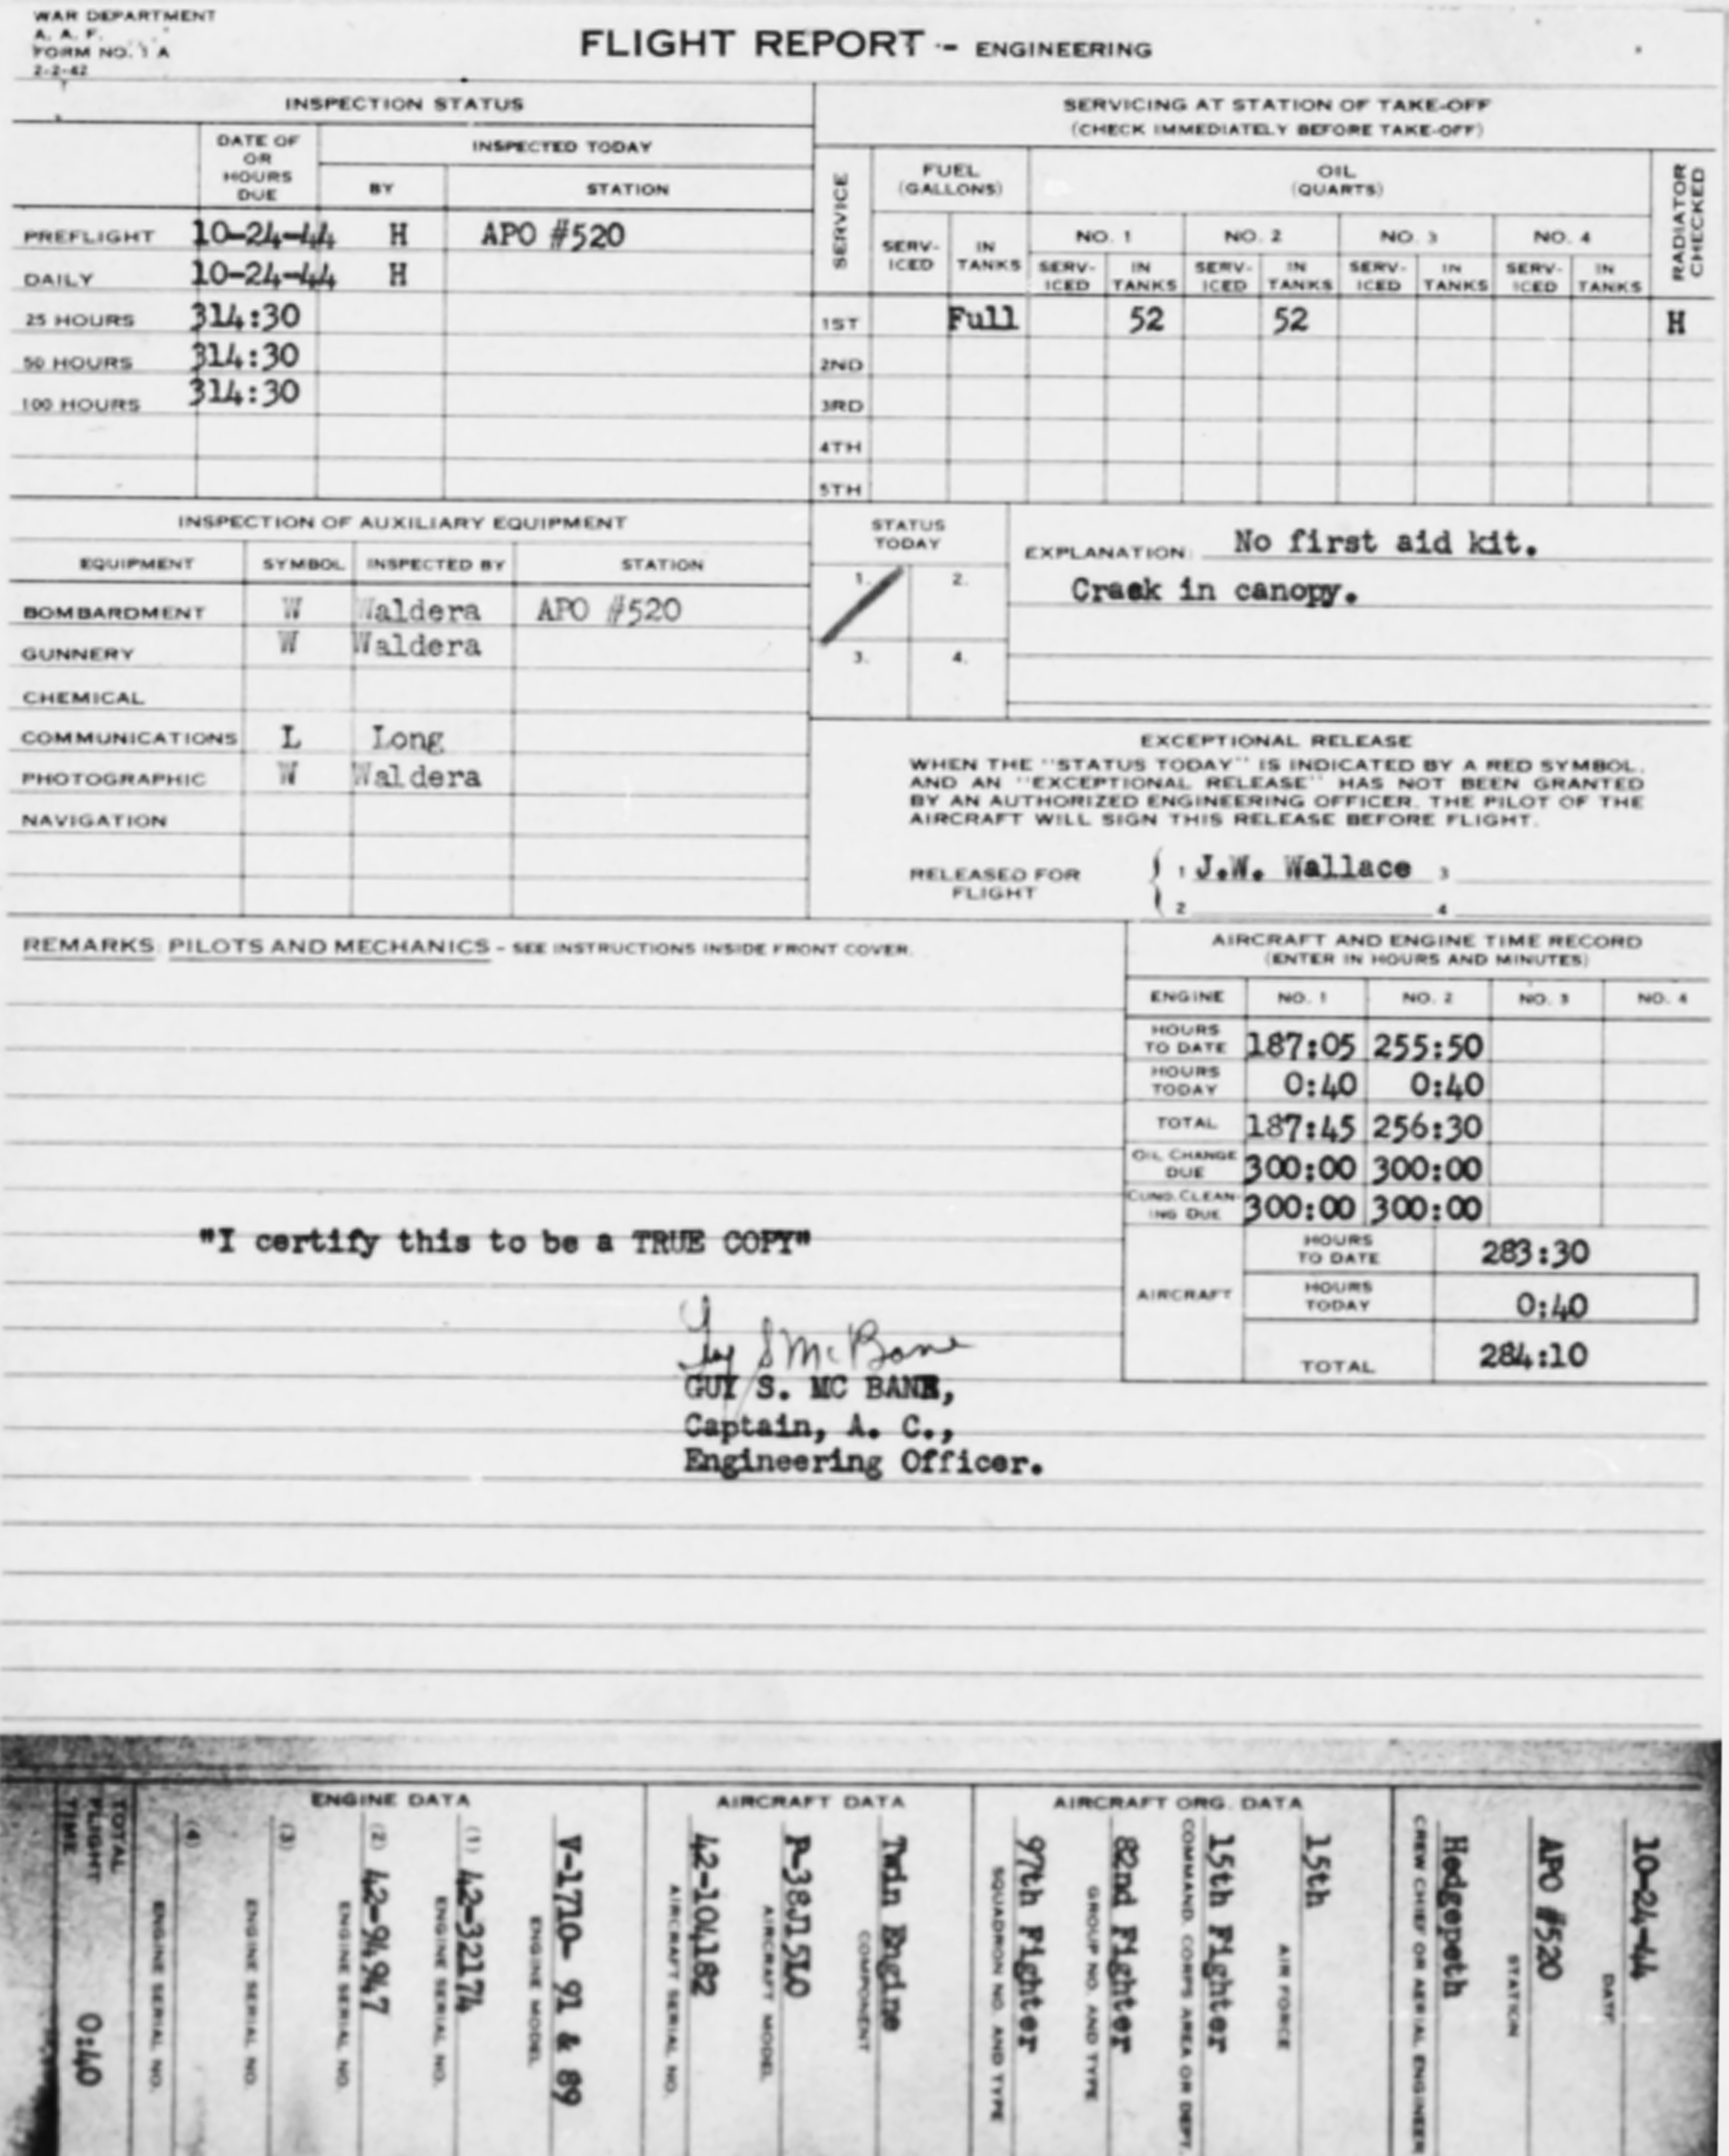 WAR DEPARTMENT
A. A. F.
FORM NO. 1 A
2-2-42
FLIGHT REPORT - ENGINEERING
INSPECTION STATUS
DATE OF OR HOURS DUE
INSPECTED TODAY
BY STATION
PREFLIGHT 10-24-44 H APO #520
DAILY 10-24-44 H
25 HOURS 314:30
50 HOURS 314:30
100 HOURS 314:30
SERVICING AT STATION OF TAKE-OFF
(CHECK IMMEDIATELY BEFORE TAKE-OFF)
SERVICE
FUEL (GALLONS)
OIL (QUARTS)
RADIATOR CHECKED
NO. 1 NO. 2 NO. 3 NO. 4
SERV-ICED IN TANKS SERV-ICED IN TANKS SERV-ICED IN TANKS SERV-ICED IN TANKS SERV-ICED IN TANKS
1ST Full 52 52 H
2ND
3RD
4TH
5TH
INSPECTION OF AUXILIARY EQUIPMENT
EQUIPMENT SYMBOL INSPECTED BY STATION
BOMBARDMENT W Waldera APO #520
GUNNERY W Waldera
CHEMICAL
COMMUNICATIONS L Long
PHOTOGRAPHIC W Waldera
NAVIGATION
STATUS TODAY
1. 2.
3. 4.
EXPLANATION: No first aid kit.
Crack in canopy.
EXCEPTIONAL RELEASE
WHEN THE "STATUS TODAY" IS INDICATED BY A RED SYMBOL,
AND AN "EXCEPTIONAL RELEASE" HAS NOT BEEN GRANTED
BY AN AUTHORIZED ENGINEERING OFFICER, THE PILOT OF THE
AIRCRAFT WILL SIGN THIS RELEASE BEFORE FLIGHT.
RELEASED FOR FLIGHT
1 J.W. Wallace 3
2 4
REMARKS: PILOTS AND MECHANICS - SEE INSTRUCTIONS INSIDE FRONT COVER.
AIRCRAFT AND ENGINE TIME RECORD
(ENTER IN HOURS AND MINUTES)
ENGINE NO. 1 NO. 2 NO. 3 NO. 4
HOURS TO DATE 187:05 255:50
HOURS TODAY 0:40 0:40
TOTAL 187:45 256:30
OIL CHANGE DUE 300:00 300:00
CUNO.CLEAN-ING DUE 300:00 300:00
AIRCRAFT
HOURS TO DATE 283:30
HOURS TODAY 0:40
TOTAL 284:10
"I certify this to be a TRUE COPY"
Guy S McBane
GUY S. MC BANE,
Captain, A. C.,
Engineering Officer.
10-24-44
DATE
APO #520
STATION
Hedgepeth
CREW CHIEF OR AERIAL ENGINEER
AIRCRAFT ORG. DATA
15th
AIR FORCE
15th Fighter
COMMAND, CORPS AREA OR DEPT.
82nd Fighter
GROUP NO. AND TYPE
97th Fighter
SQUADRON NO. AND TYPE
AIRCRAFT DATA
Twin Engine
COMPONENT
P-38J15LO
AIRCRAFT MODEL
42-104182
AIRCRAFT SERIAL NO.
ENGINE DATA
V-1710- 91 & 89
ENGINE MODEL
(1) 42-32174
ENGINE SERIAL NO.
(2) 42-94947
ENGINE SERIAL NO.
(3)
ENGINE SERIAL NO.
(4)
ENGINE SERIAL NO.
TOTAL FLIGHT TIME 0:40